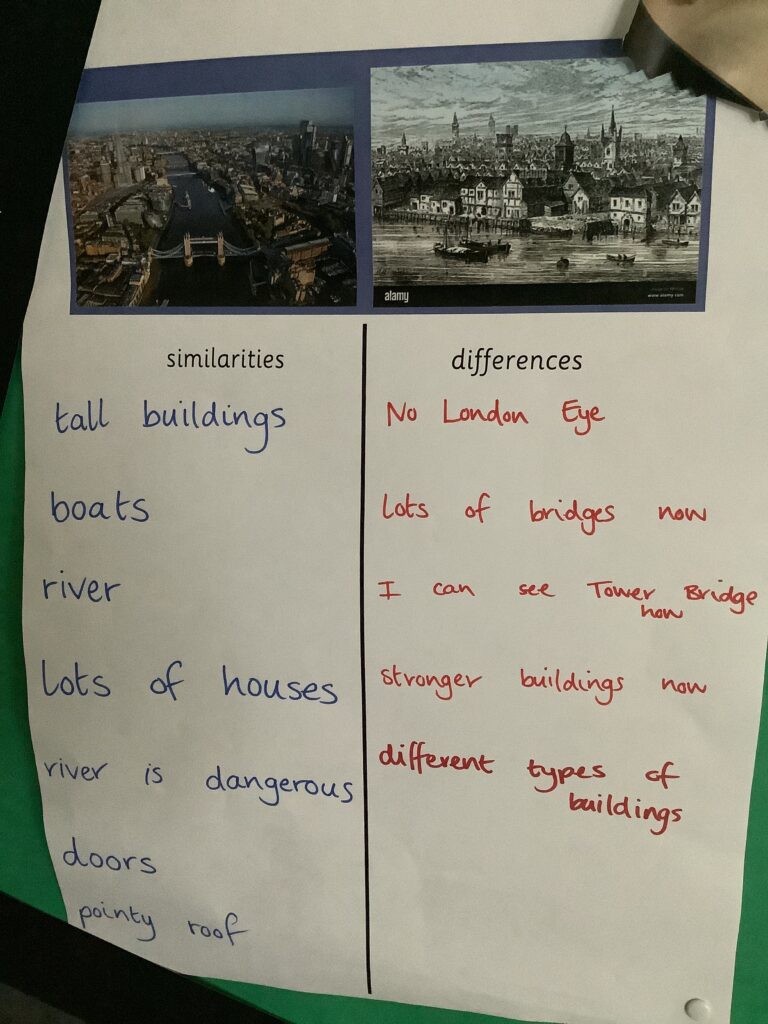 alamy
www.alamy.com
similarities
differences
tall buildings
boats
river
lots of houses
river is dangerous
doors
pointy roof
No London Eye
lots of bridges now
I can see Tower Bridge
now
stronger buildings now
different types of
buildings